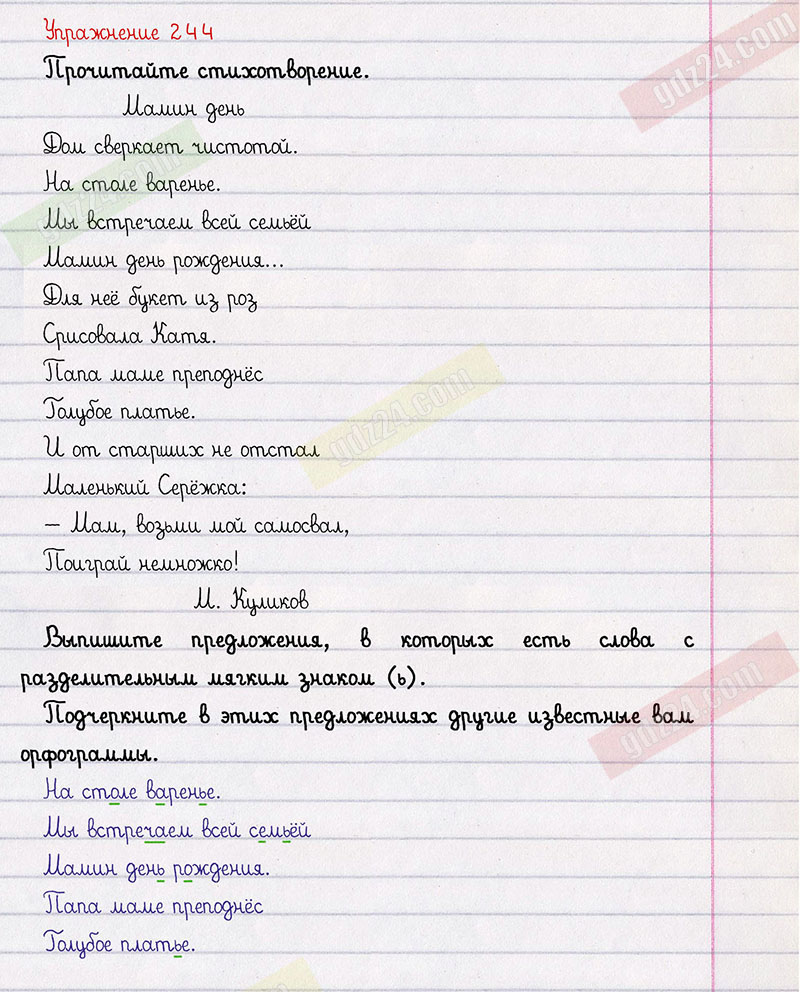 Упражнение 244
Прочитайте стихотворение.
Мамин день
Дом сверкает чистотой.
На столе варенье.
Мы встречаем всей семьёй
Мамин день рождения...
Для неё букет из роз
Срисовала Катя.
Папа маме преподнёс
Голубое платье.
И от старших не отстал
Маленький Серёжка:
– Мам, возьми мой самосвал,
Поиграй немножко!
М. Куликов
Выпишите предложения, в которых есть слова с
разделительным мягким знаком (ь).
Подчеркните в этих предложениях другие известные вам
орфограммы.
На столе варенье.
Мы встречаем всей семьёй
Мамин день рождения.
Папа маме преподнёс
Голубое платье.
gdz24.com
gdz24.com
gdz24.com
gdz24.com